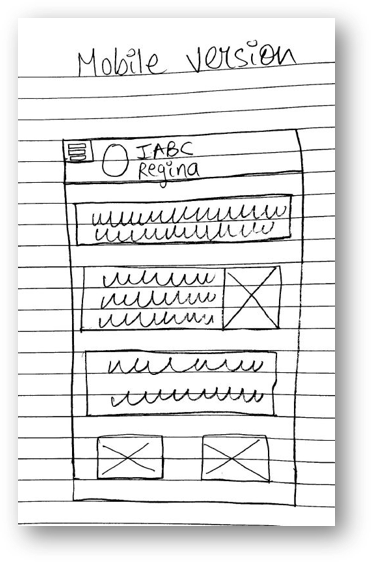 Mobile version
IABC
Regina